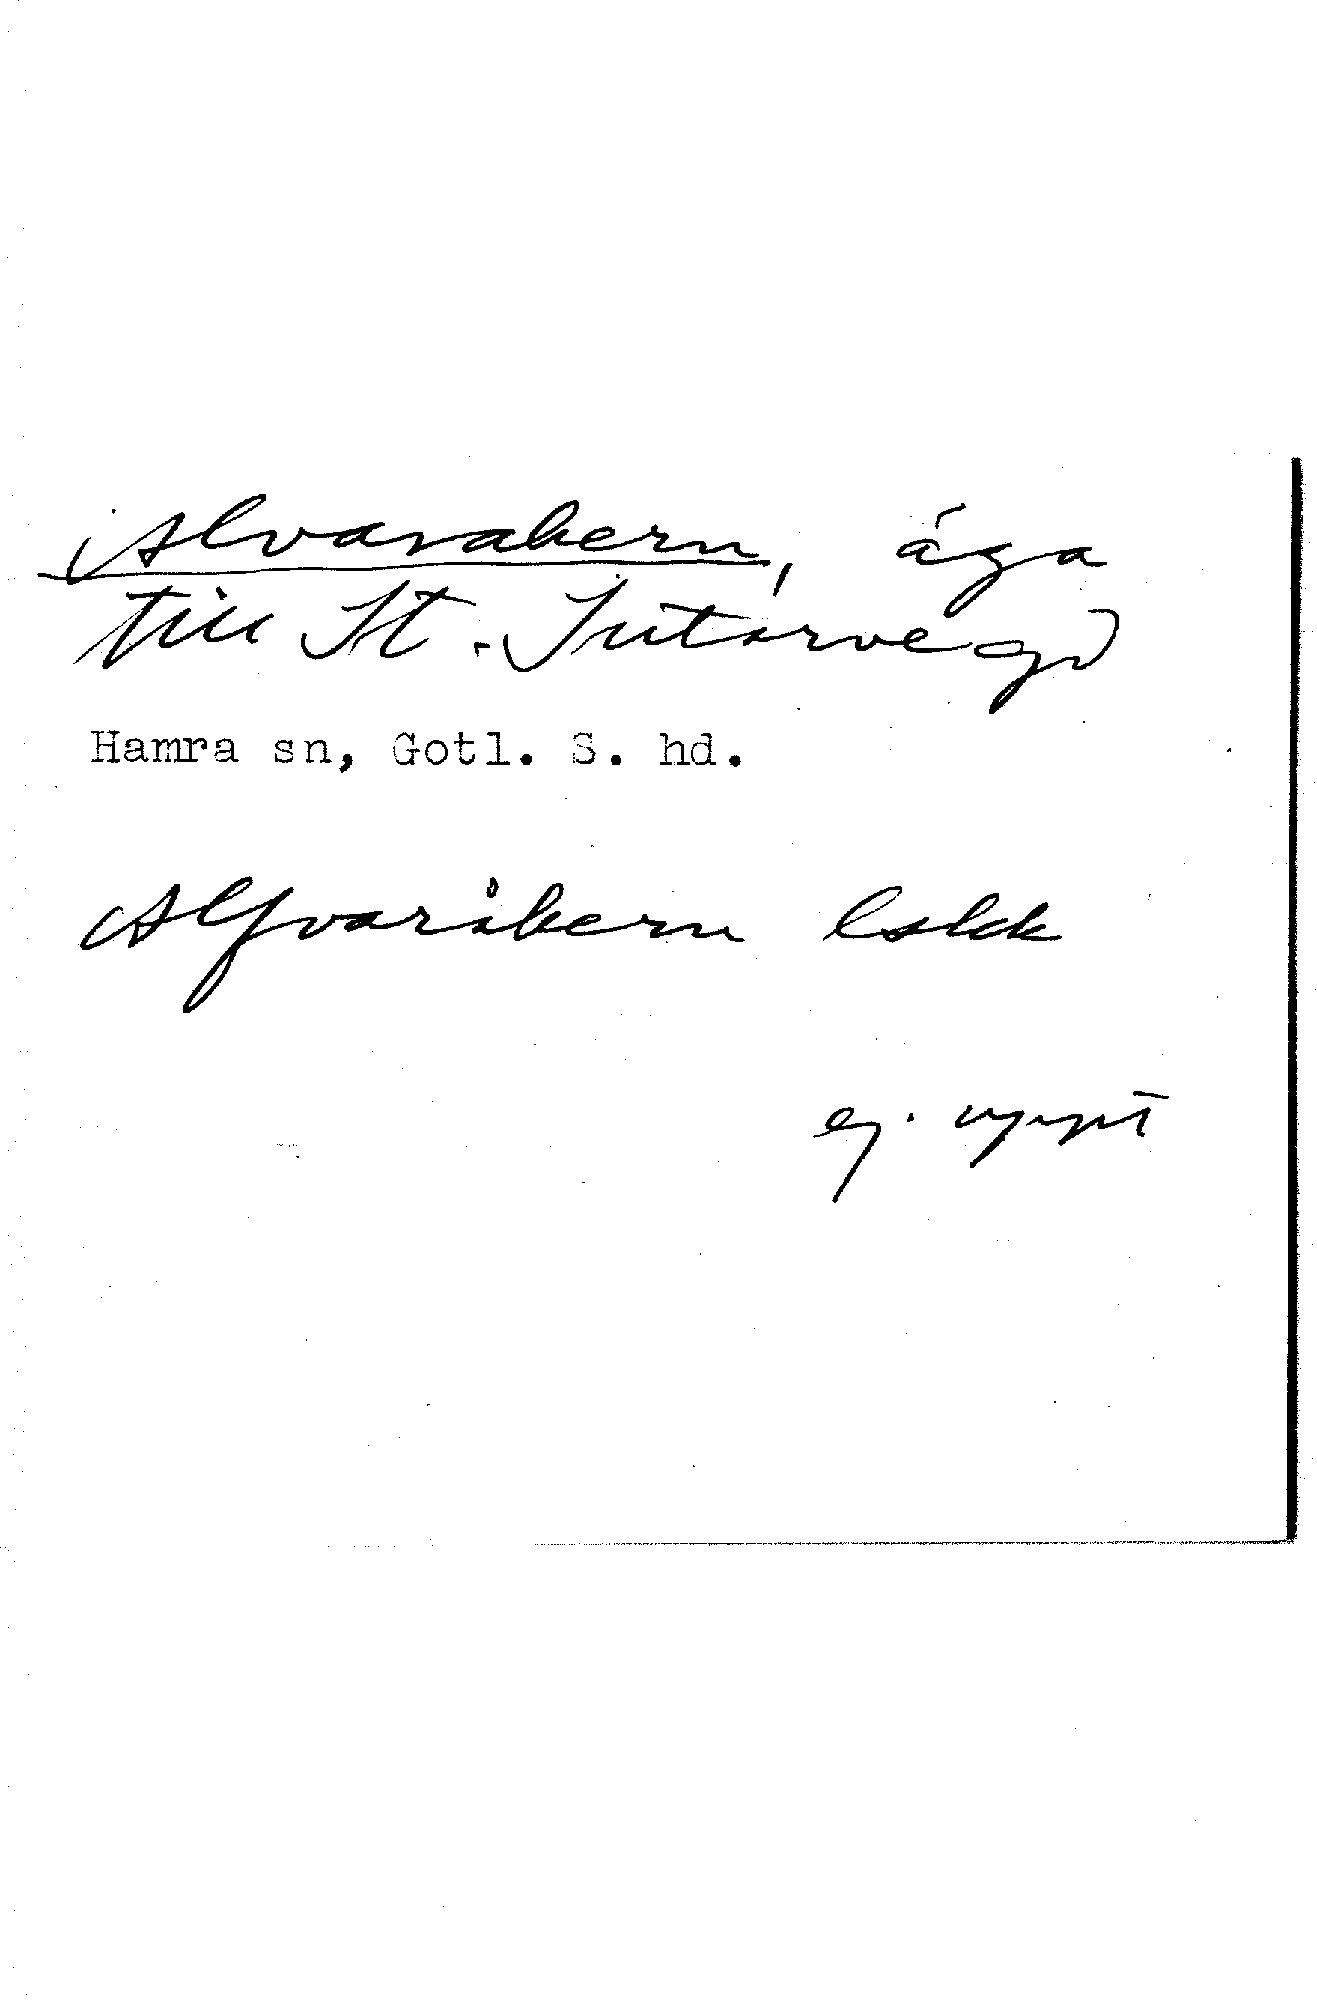 Alvarakern, äga
till St. Sutarve gd
Hamra sn, Gotl. S. hd.
Alfvaråkern lskk
ej. uppt